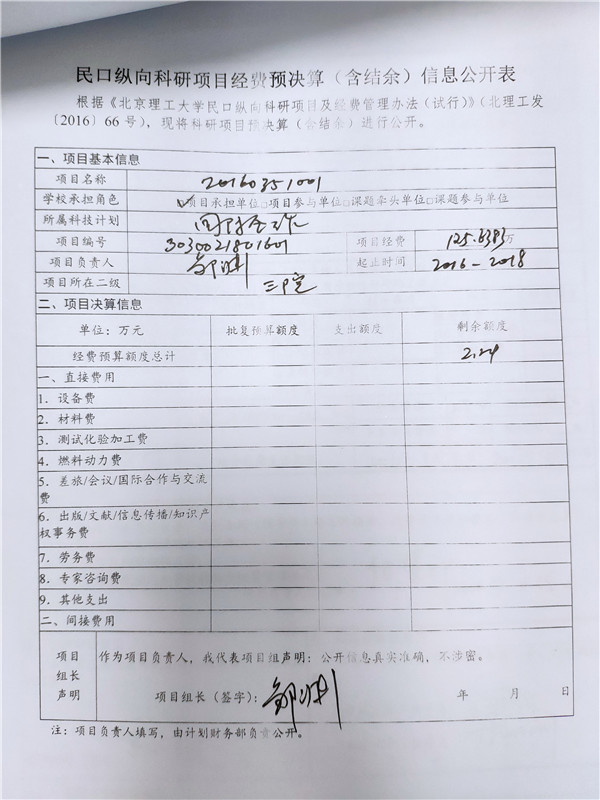 民口纵向科研项目经费预决算（含结余）信息公开表
根据《北京理工大学民口纵向科研项目及经费管理办法（试行）》（北理工发
〔2016〕66号），现将科研项目预决算（含结余）进行公开。
一、项目基本信息
项目名称 20160351001
学校承担角色 ☑项目承担单位□项目参与单位□课题牵头单位□课题参与单位
所属科技计划
项目编号 3030021801601 项目经费 125.8383万
项目负责人 邹渊 起止时间 2016-2018
项目所在二级
二、项目决算信息
单位：万元 批复预算额度 支出额度 剩余额度
经费预算额度总计 2.24
一、直接费用
1. 设备费
2. 材料费
3. 测试化验加工费
4. 燃料动力费
5. 差旅/会议/国际合作与交流
费
6. 出版/文献/信息传播/知识产
权事务费
7. 劳务费
8. 专家咨询费
9. 其他支出
二、间接费用
项目
组长
声明
作为项目负责人，我代表项目组声明：公开信息真实准确，不涉密。
项目组长（签字）：邹渊 年 月 日
注：项目负责人填写，由计划财务部负责公开。